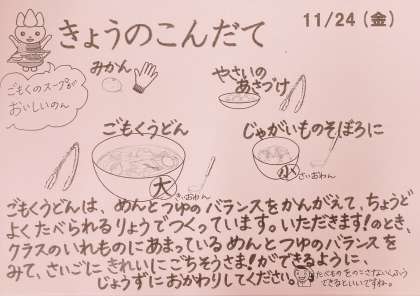 きょうのこんだて
11/24 (金)
ごもくのスープが
おいしいのん
みかん
やさいの
あさづけ
ごもくうどん
じゃがいものそぼろに
大
きいおわん
小
さいおわん
ごもくうどんは、めんとつゆのバランスをかんがえて、ちょうど
よくたべられるりょうでつくっています。いただきます!のとき、
クラスのいれものにあまっているめんとつゆのバランスを
みて、さいごにきれいにごちそうさま!ができるように、
じょうずにおかわりしてください。
たべものをのこさないくふう
できるといいですね。